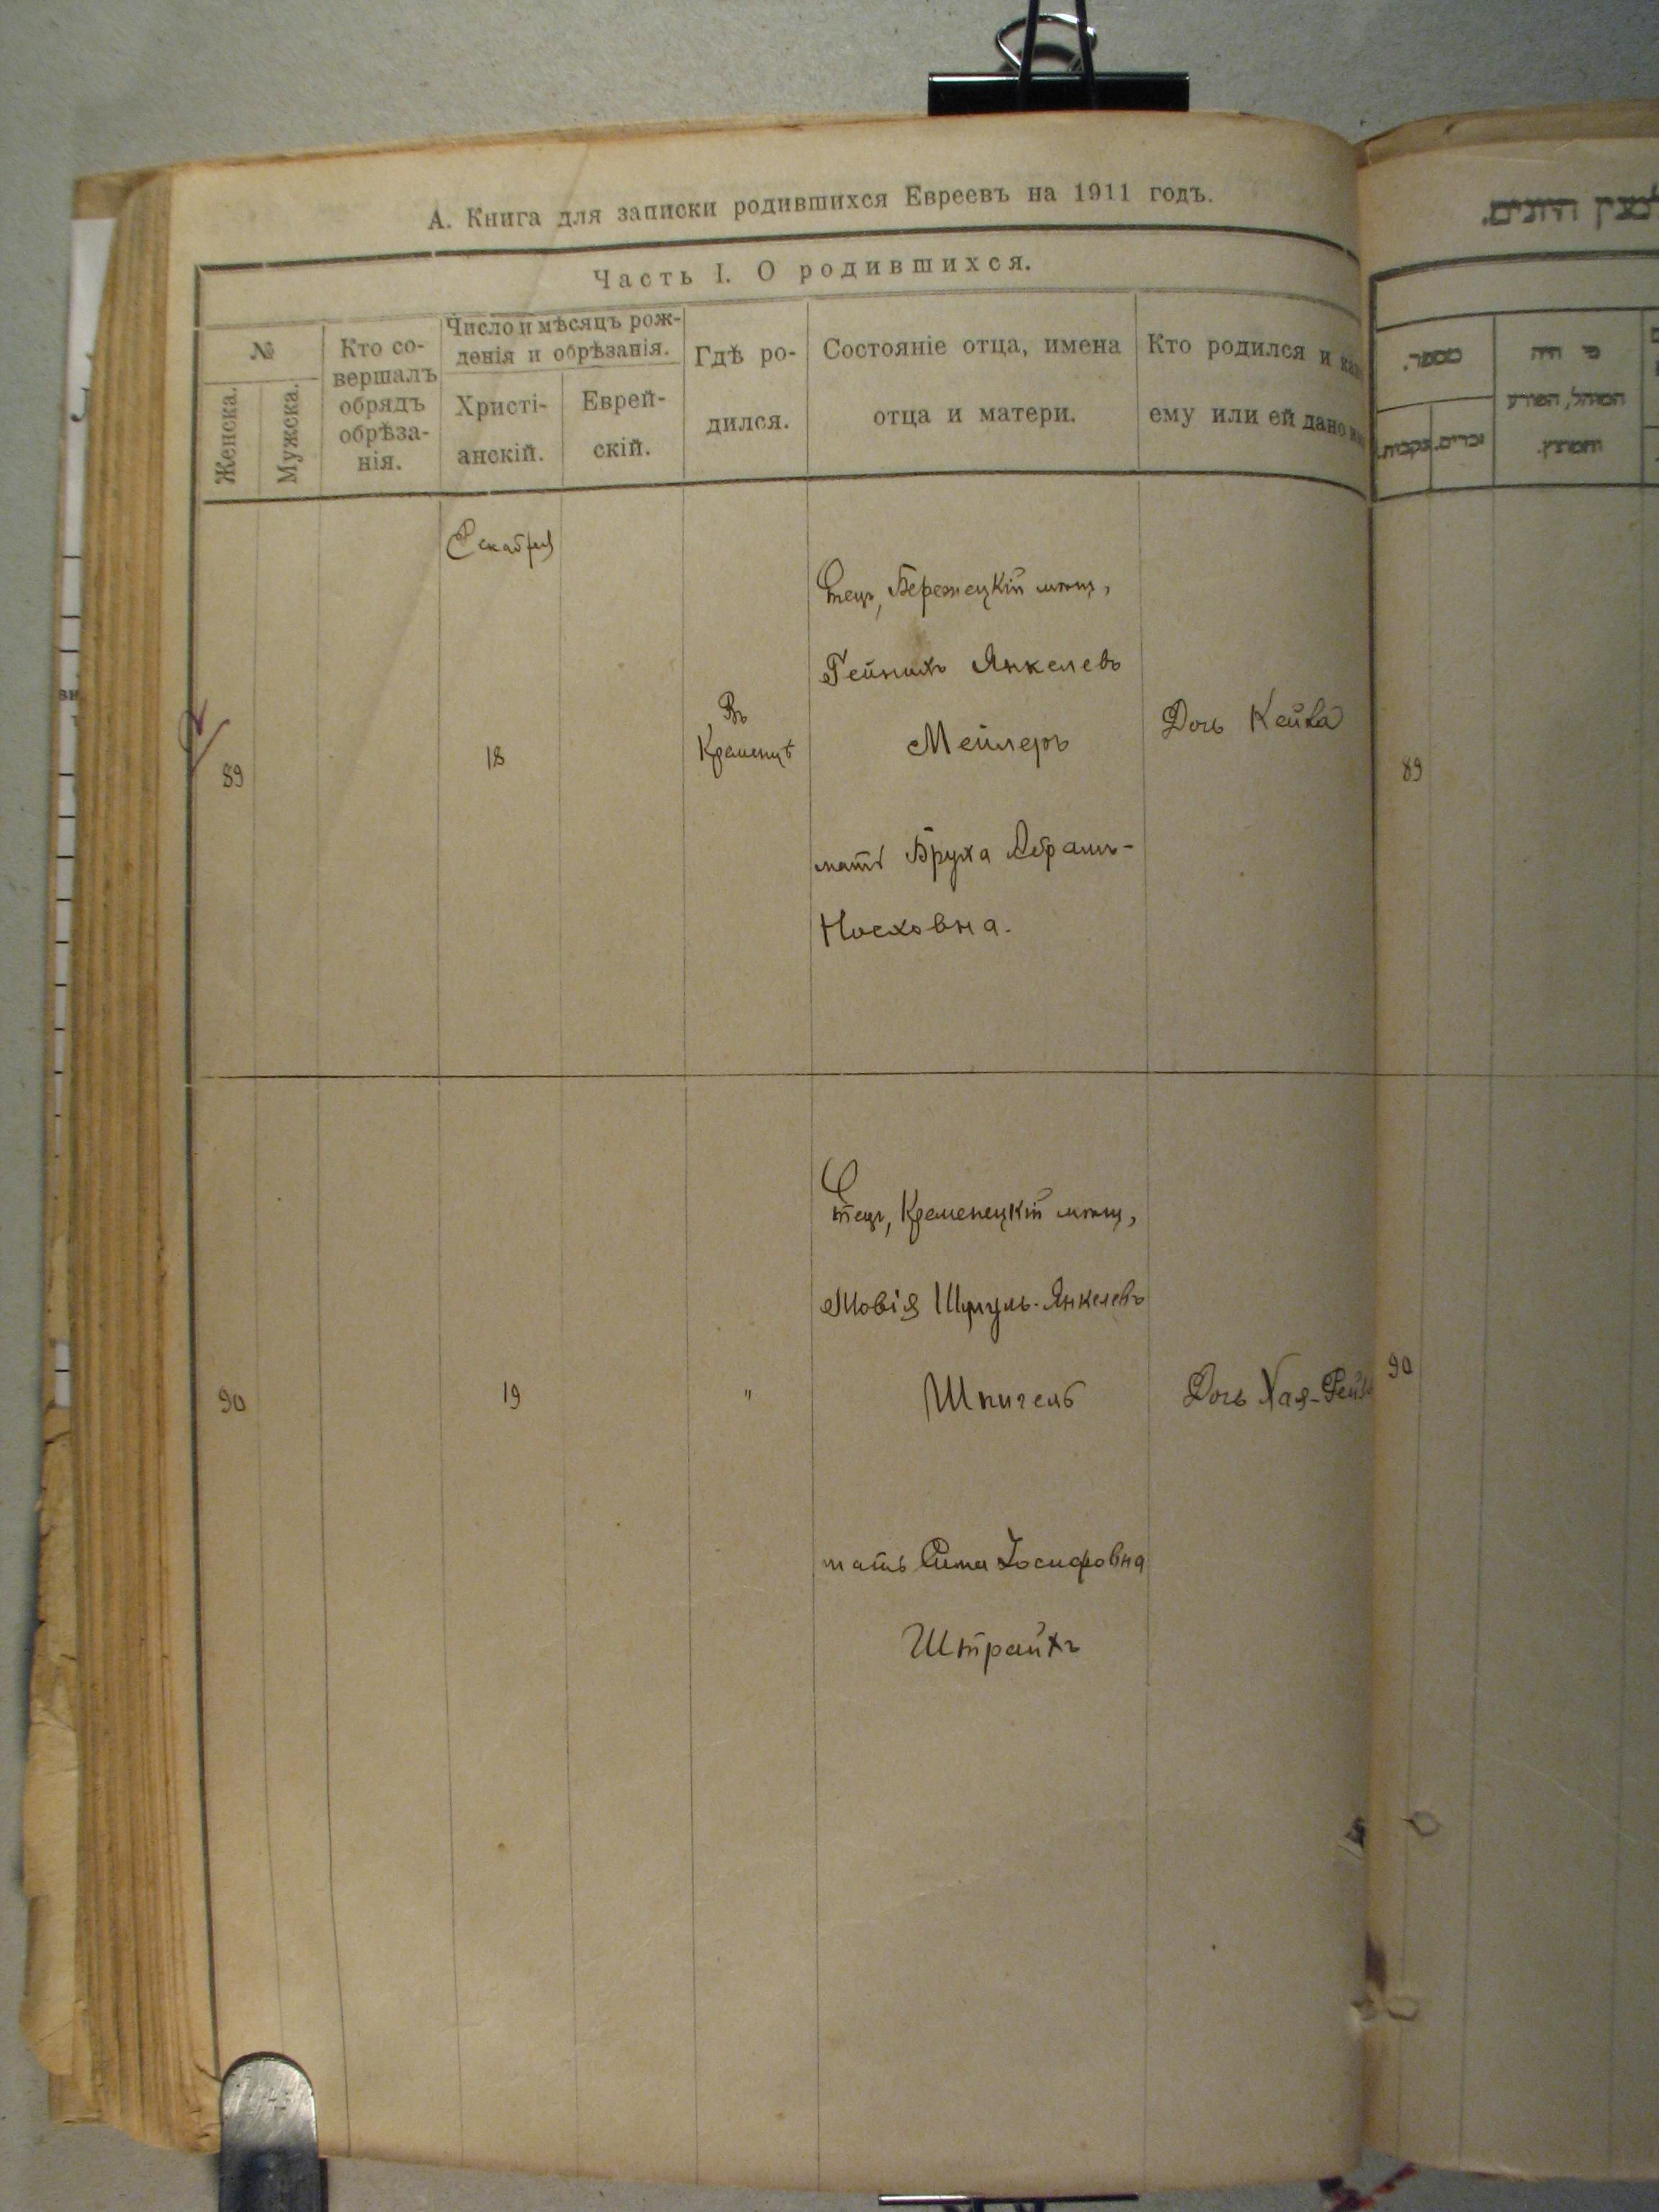 А. Книга для записки родившихся Евреевъ на 1911 годъ.
Часть I. О родившихся.
№
Женска.
Мужска.
Кто со-
вершалъ
обрядъ
обрѣза-
нія.
Число и мѣсяцъ рож-
денія и обрѣзанія.
Христі-
анскій.
Еврей-
скій.
Гдѣ ро-
дился.
Состояніе отца, имена
отца и матери.
Кто родился и
ему или ей дано
Декабря
89
18
Въ
Кременцѣ
Отецъ, Бережецкій мѣщ,
Гейнихъ Янкелевъ
Мейлеръ
мать Бруха Абрамъ-
Носховна.
Дочь Кейла
90
19
"
Отецъ, Кременецкій мѣщ,
Товія Шмуль-Янкелевъ
Шпигель
мать Сима Іосифовна
Штрайхъ
Дочь Хая-
מספר.
זכרים.
נקבות.
מי היה
המוהל, הפורע
והמוצץ.
89
90